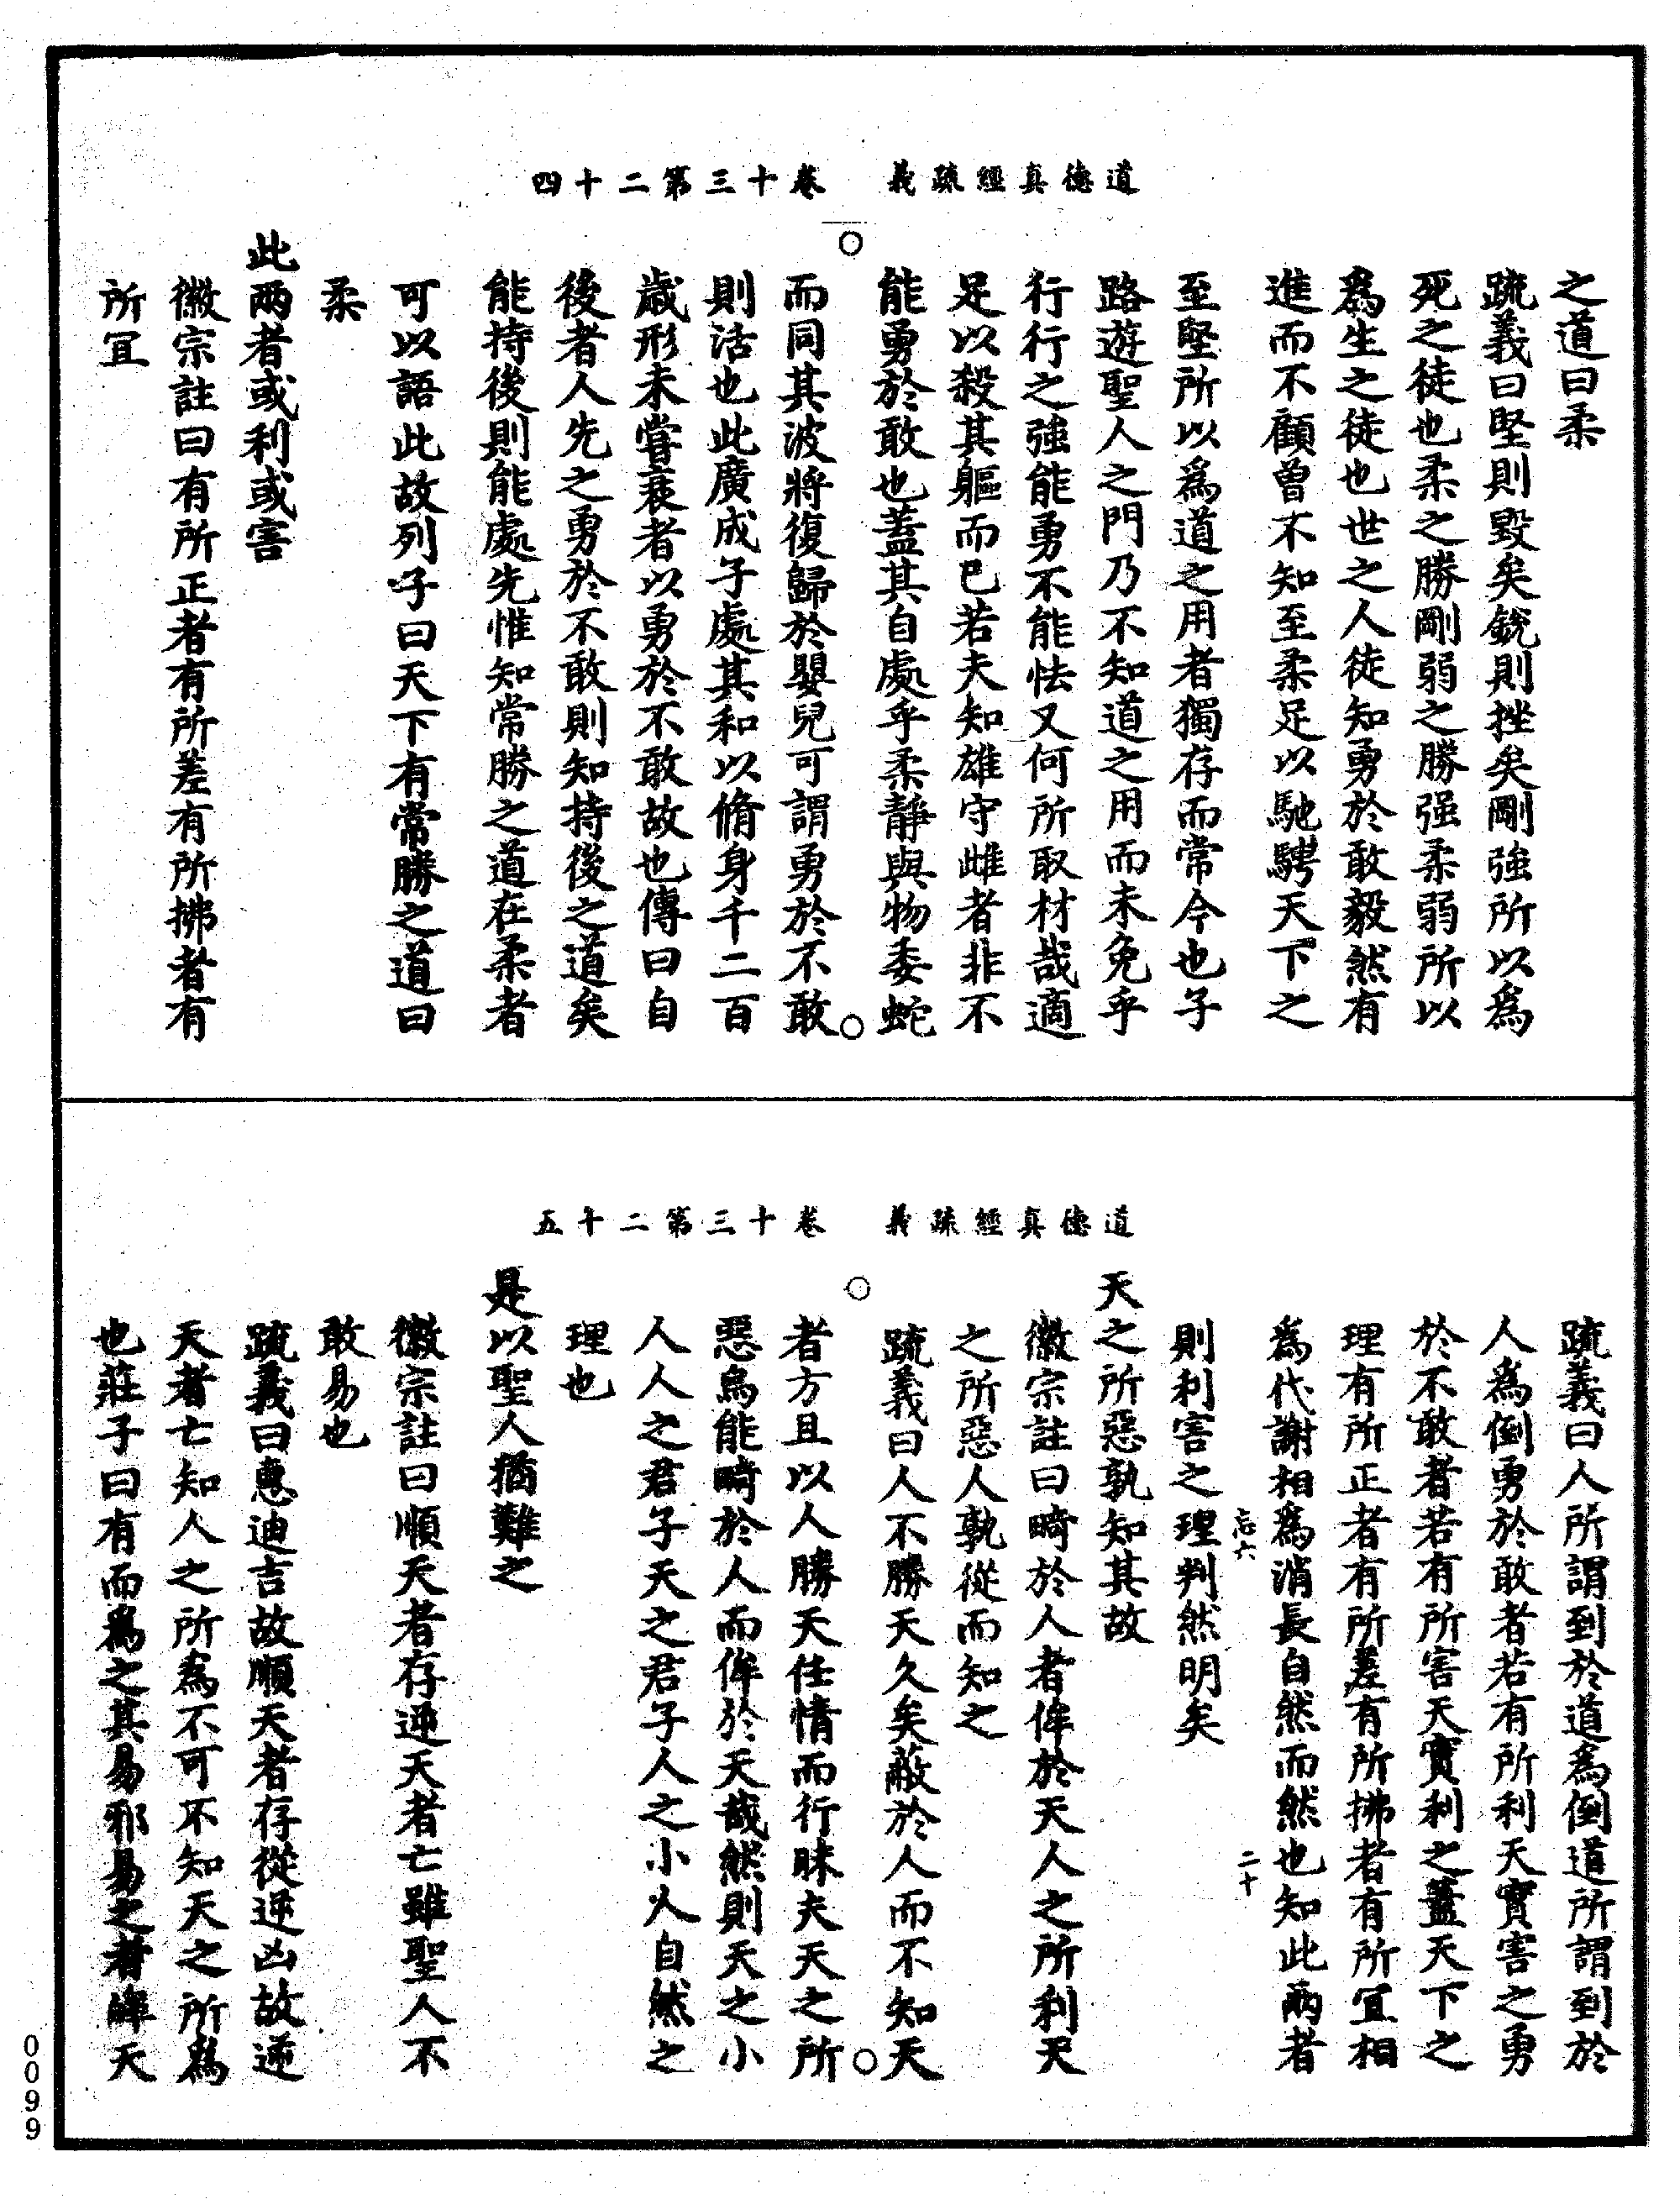 道德真經疏義　卷十三第二十四
之道曰柔
疏義曰堅則毀矣銳則挫矣剛強所以為
死之徒也柔之勝剛弱之勝强柔弱所以
為生之徒也世之人徒知勇於敢毅然有
進而不顧曾不知至柔足以馳騁天下之
至堅所以為道之用者獨存而常今也子
路遊聖人之門乃不知道之用而未免乎
行行之強能勇不能怯又何所取材哉適
足以殺其軀而已若夫知雄守雌者非不
能勇於敢也蓋其自處乎柔靜與物委蛇
而同其波將復歸於嬰兒可謂勇於不敢
則活也此廣成子處其和以脩身千二百
歲形未嘗衰者以勇於不敢故也傳曰自
後者人先之勇於不敢則知持後之道矣
能持後則能處先惟知常勝之道在柔者
可以語此故列子曰天下有常勝之道曰
柔
此兩者或利或害
徽宗註曰有所正者有所差有所拂者有
所宜
道德真經疏義　卷十三第二十五
疏義曰人所謂到於道為倒道所謂到於
人為倒勇於敢者若有所利天實害之勇
於不敢者若有所害天實利之蓋天下之
理有所正者有所差有所拂者有所宜相
為代謝相為消長自然而然也知此兩者
忘六　二十
則利害之理判然明矣
天之所惡孰知其故
徽宗註曰畸於人者侔於天人之所利天
之所惡人孰從而知之
疏義曰人不勝天久矣蔽於人而不知天
者方且以人勝天任情而行昧夫天之所
惡烏能畸於人而侔於天哉然則天之小
人人之君子天之君子人之小人自然之
理也
是以聖人猶難之
徽宗註曰順天者存逆天者亡雖聖人不
敢易也
疏義曰惠迪吉故順天者存從逆凶故逆
天者亡知人之所為不可不知天之所為
也莊子曰有而為之其易邪易之者皞天
0099